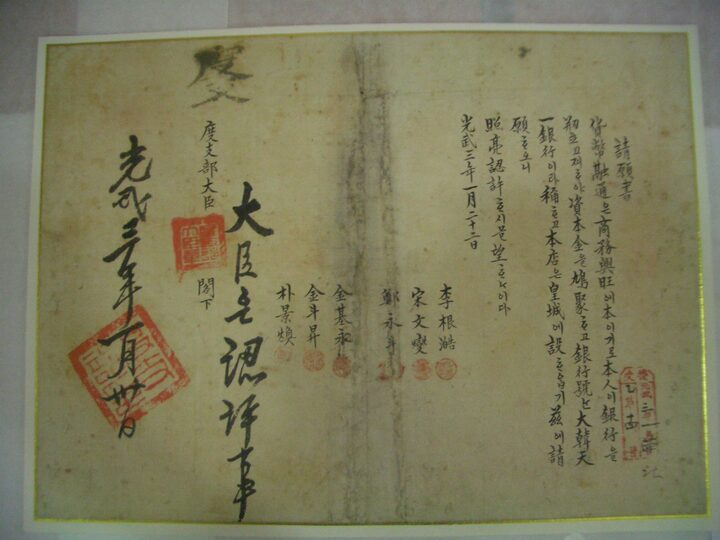 請願書
貨幣融通은商務興旺에本이기로本人이銀行을
刱ᄒᆞ고져ᄒᆞ야資本金을鳩聚ᄒᆞ고銀行號ᄂᆞᆫ大韓天
一銀行이라稱ᄒᆞ고本店은皇城에設ᄒᆞ옵기玆에請
願ᄒᆞ오니
照亮認許ᄒᆞ시믈望ᄒᆞᄂᆞ이다
光武三年一月二十二日
李根澔
宋文燮
鄭永斗
金基永
金斗昇
朴景煥
大臣은認許事
度支部大臣 閣下
度支
光武三年一月卅日